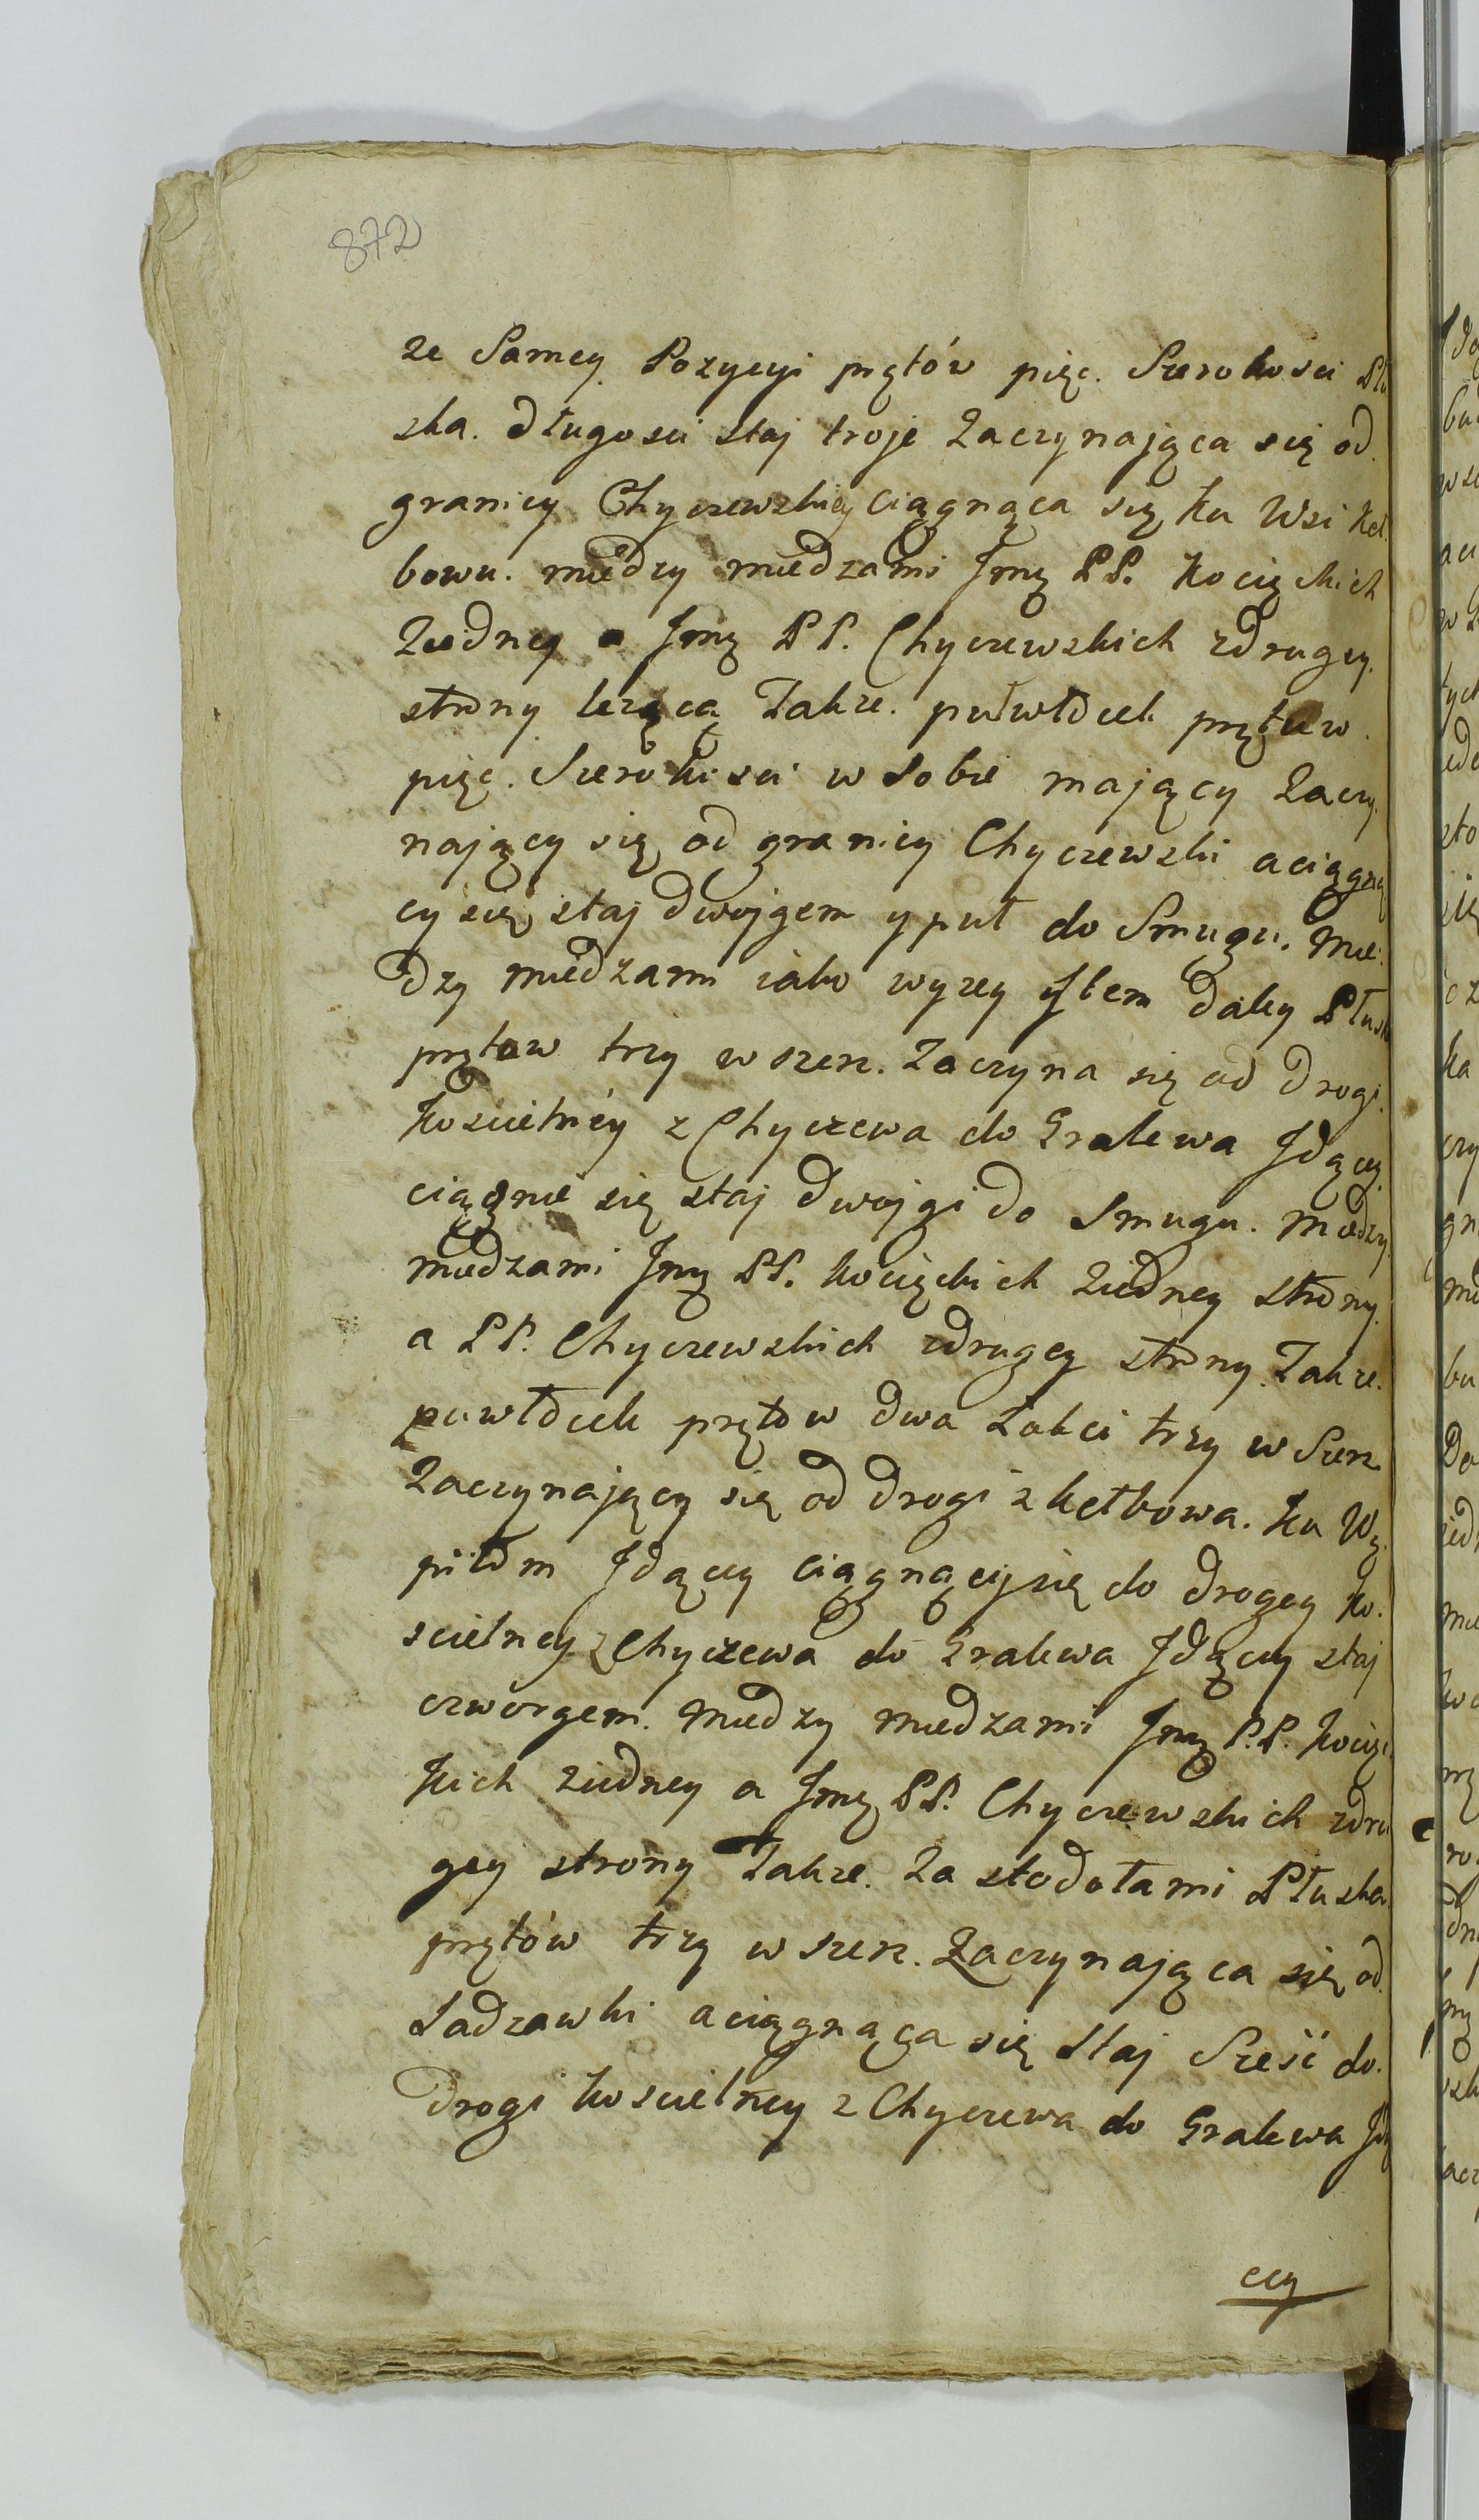 872
ze Samey Pozycyi prętów pięc. Szerokosci Płu
ska. długosci staj troje Zaczynająca się od
granicy Chyczewskiey ciągnąca się ku Wsi Keł
bowu. miedzy miedzami Jmę PP. Kocięckich
Ziedney a Jmę PP. Chyczewskich zdrugey.
strony lezącą Takze. pułwłocek prętuw.
pięc. Szerokosci w Sobie mający Zaczy
nający się od granicy Chyczewski aciągną
cy się staj dwojgem y puł do Smugu. Mie
dzy miedzami iako wyzey ytem daley Płuska
prętow trzy w szerz. Zaczyna się od Drogi.
Koscielnéy z Chyczewa do Gralewa Jdącey
ciągnie się staj dwojgi do Smugu. miedzy
miedzami Jmę PP. Kocięckich Ziedney strony
a PP. Chyczewskich zdrugey strony. Takze.
puwłocek prętow dwa Łokci trzy w Szerz
Zaczynający się od Drogi z Kełbowa. ku Wę
piłom Jdący ciągnący się do drogey Ko
scielney z Chyczewa do Gralewa Jdącey staj
czworgem. Miedzy miedzami Jmę P.P. Kocięc
kich ziedney a Jmę PP. Chyczewskich zdru
gey strony Takze. Za stodołami Płuska
prętów trzy w szerz. Zaczynająca się od
Sadzawki aciągnąca się Staj Sześć do.
Drogi koscielney z Chyczewa do Gralewa Jdą
cey